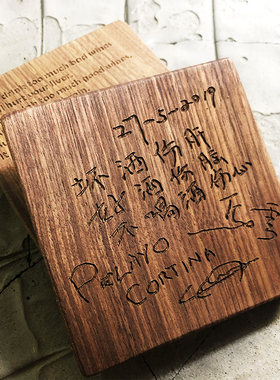 drink too much bad wines
hurt your liver.
drink too much good wines,
27-5-2019
坏酒伤肝
好酒伤
不喝酒伤心
PELAYO
CORTINA